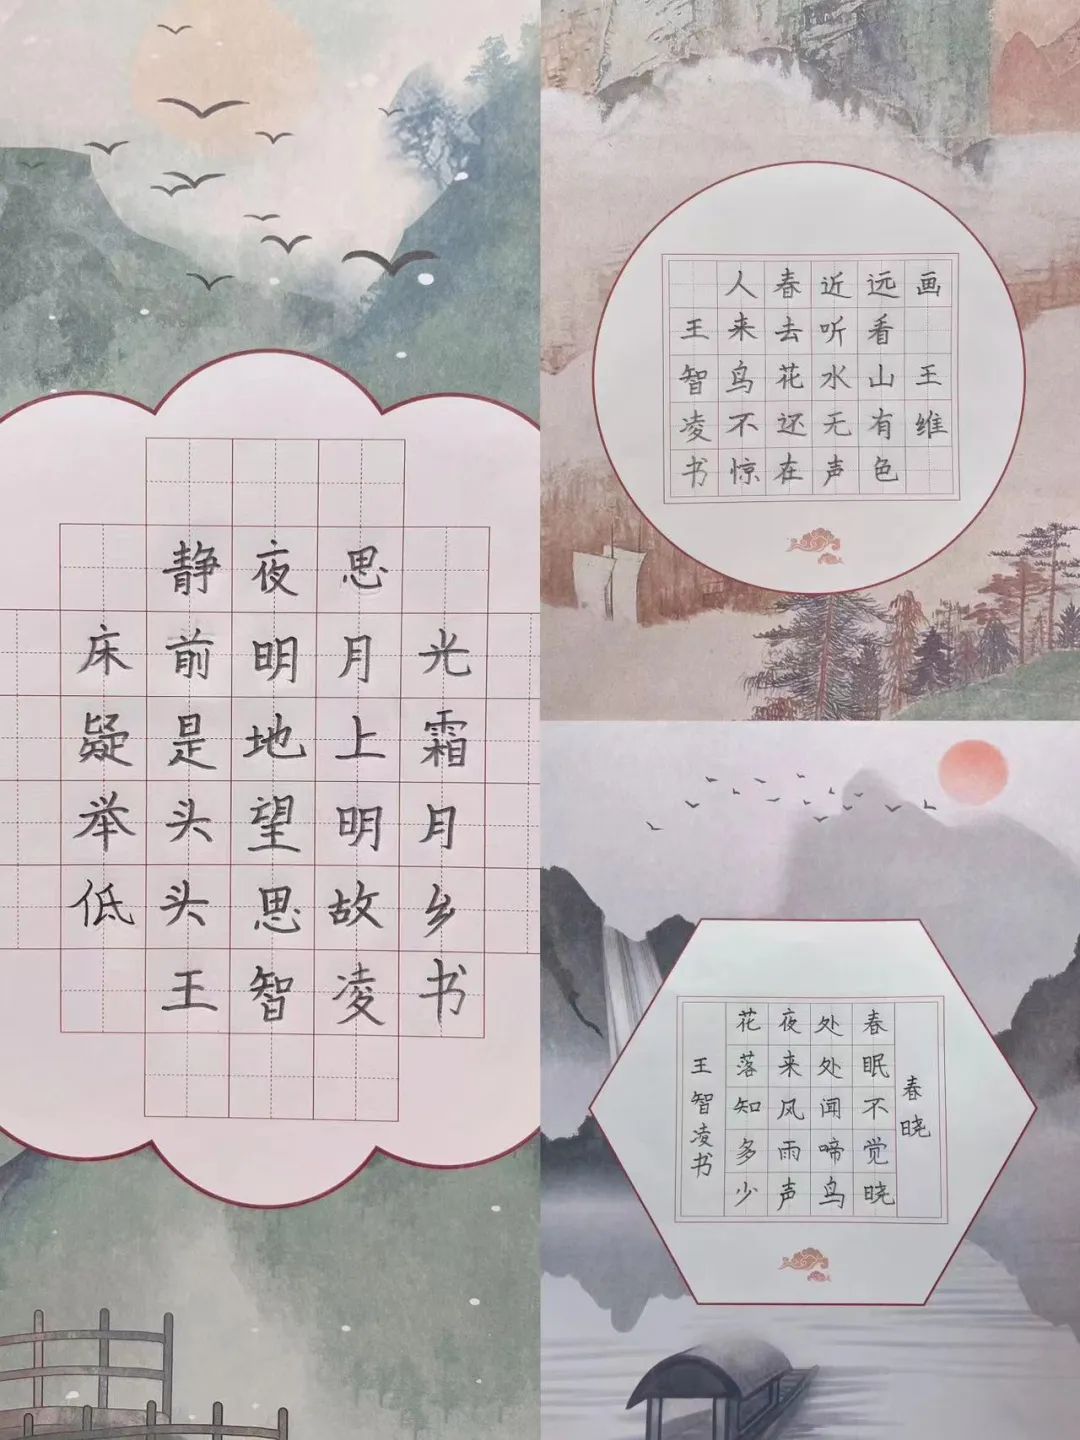 静夜思
床前明月光
疑是地上霜
举头望明月
低头思故乡
王智凌书
画 王维
远看山有色
近听水无声
春去花还在
人来鸟不惊
王智凌书
春晓
春眠不觉晓
处处闻啼鸟
夜来风雨声
花落知多少
王智凌书